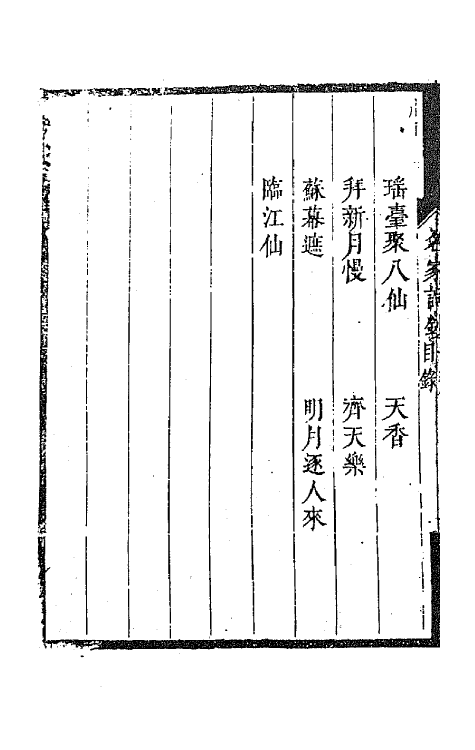 名家詞鈔目錄
瑤臺聚八仙　天香
拜新月慢　齊天樂
蘇幕遮　明月逐人來
臨江仙